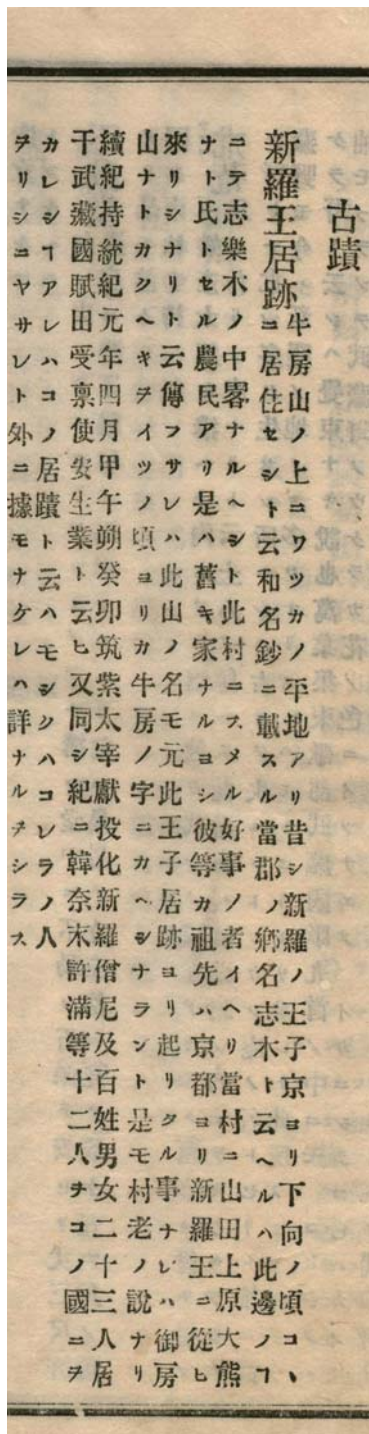 古蹟
新羅王居跡
牛房山ノ上ニワツカノ平地アリ昔シ新羅ノ王子京ヨリ下向ノ頃コヽ
ニ居住セシト云和名鈔ニ載スル當郡ノ鄕名志木ト云ヘルハ此邊ノヿ
ニテ志樂木ノ中畧ナルヘシト此村ニスメル好事ノ者イヘリ當村ニ山田上原大熊
ナト氏トセル農民アリ是ハ舊キ家ナルヨシ彼等カ祖先ハ京都ヨリ新羅王ニ從ヒ
來リシナリト云傳フサレハ此山ノ名モ元此王子居跡ヨリ起リタル事ナレハ御房
山ナトカクヘキヲイツノ頃ヨリカ牛房ノ字ニカヘシナラント是モ村老ノ說ナリ
續紀持統紀元年四月甲午朔癸卯筑紫太宰獻投化新羅僧尼及百姓男女二十三人居
于武藏國賦田受禀使安生業ト云ヒ又同シ紀ニ韓奈末許滿等十二人ヲコノ國ニヲ
カレシヿアレハコノ居蹟ト云ハモシクハコレラノ人
ヲリシニヤサレト外ニ據モナケレハ詳ナルヲシラス